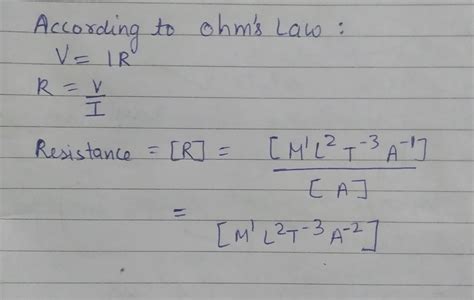 According to ohm's Law :
V = IR
R = V/I
Resistance = [R] = [M¹L²T⁻³A⁻¹]/[A]
= [M¹L²T⁻³A⁻²]